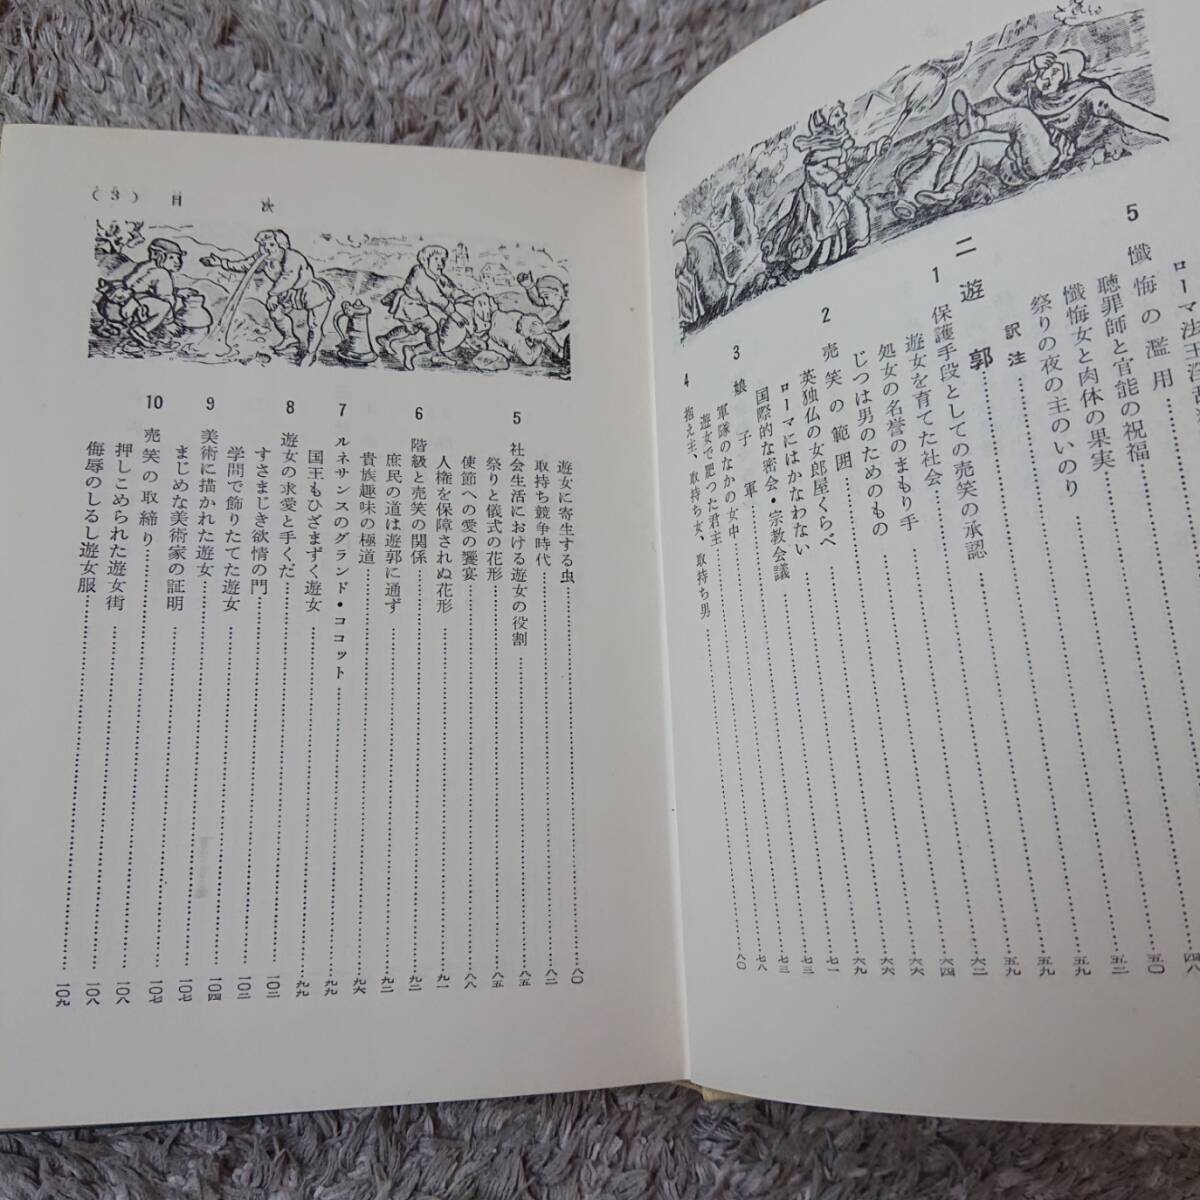 ローマ法王
5 懺悔の濫用……五〇
聴罪師と官能の祝福……五二
懺悔女と肉体の果実……五九
祭りの夜の主のいのり……五九
訳注……五九
二 遊郭……六二
1 保護手段としての売笑の承認……六四
遊女を育てた社会……六六
処女の名誉のまもり手……六六
じつは男のためのもの……六九
2 売笑の範囲……七一
英独仏の女郎屋くらべ……七三
ローマにはかなわない……七三
国際的な密会・宗教会議……七八
3 娘子軍
軍隊のなかの女中
遊女で肥つた君主
4 抱え主、取持ち女、取持ち男……八〇
(3) 目次
遊女に寄生する虫……八〇
取持ち競争時代……八二
5 社会生活における遊女の役割……八五
祭りと儀式の花形……八五
使節への愛の饗宴……八八
人権を保障されぬ花形……九一
6 階級と売笑の関係……九二
庶民の道は遊郭に通ず……九二
貴族趣味の極道……九六
7 ルネサンスのグランド・ココット……九九
国王もひざまずく遊女……九九
8 遊女の求愛と手くだ……一〇二
すさまじき欲情の門……一〇二
学問で飾りたてた遊女……一〇二
9 美術に描かれた遊女……一〇四
まじめな美術家の証明……一〇七
10 売笑の取締り……一〇七
押しこめられた遊女街……一〇八
侮辱のしるし遊女服……一〇九